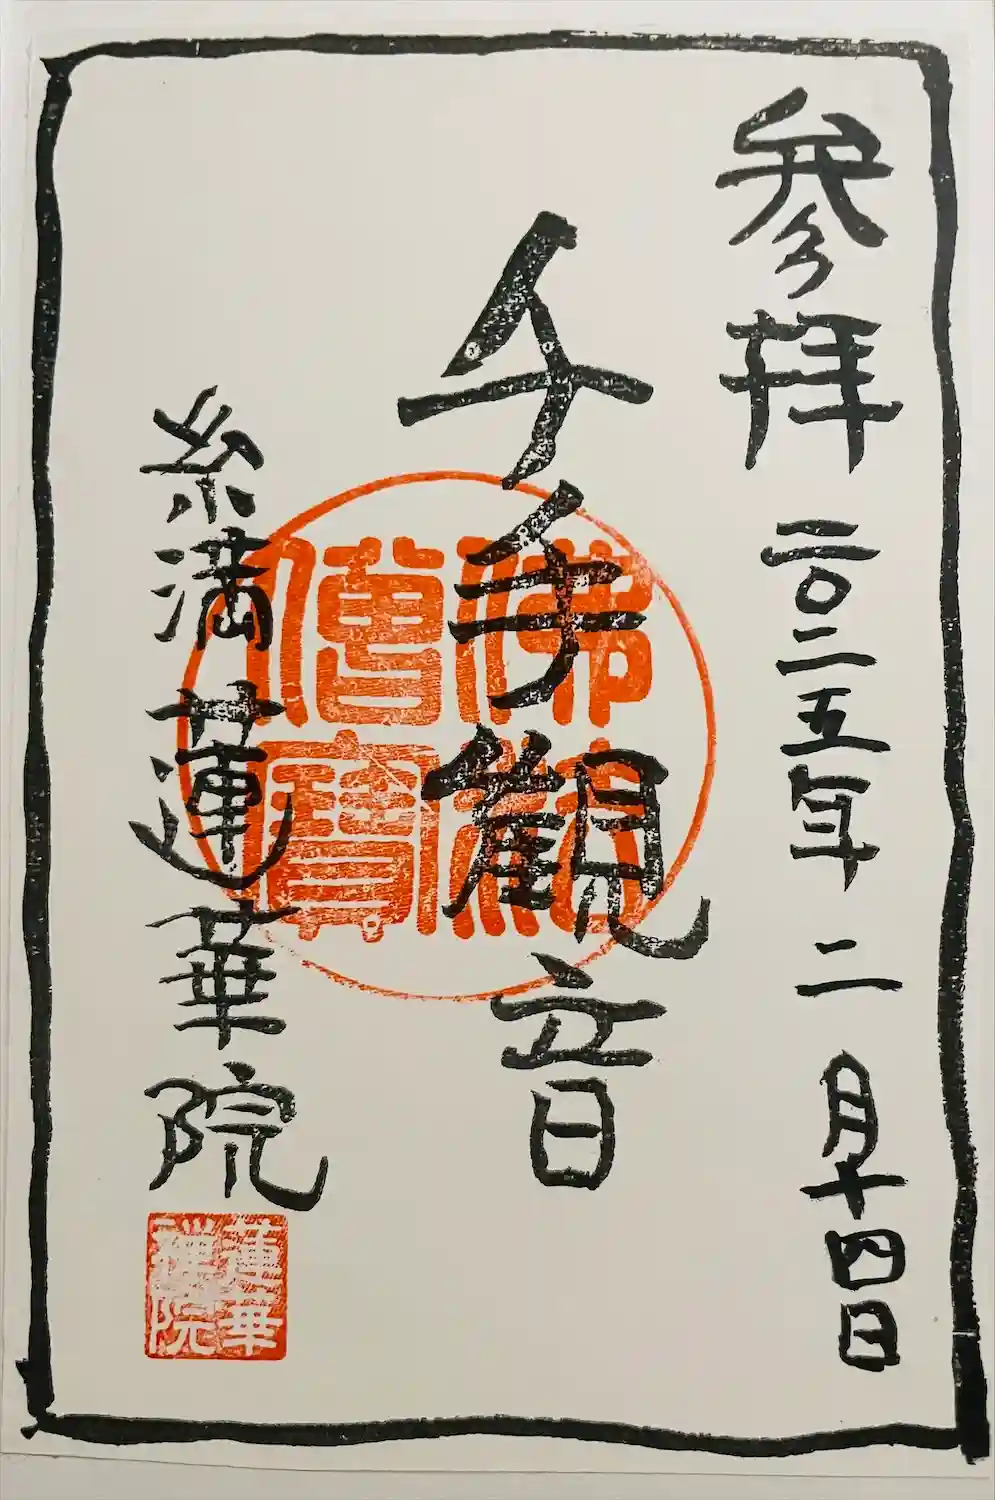 參拜 二〇二五年 二月十四日
千手觀音
糸満 蓮華院
佛法
僧寶
蓮華
禅院